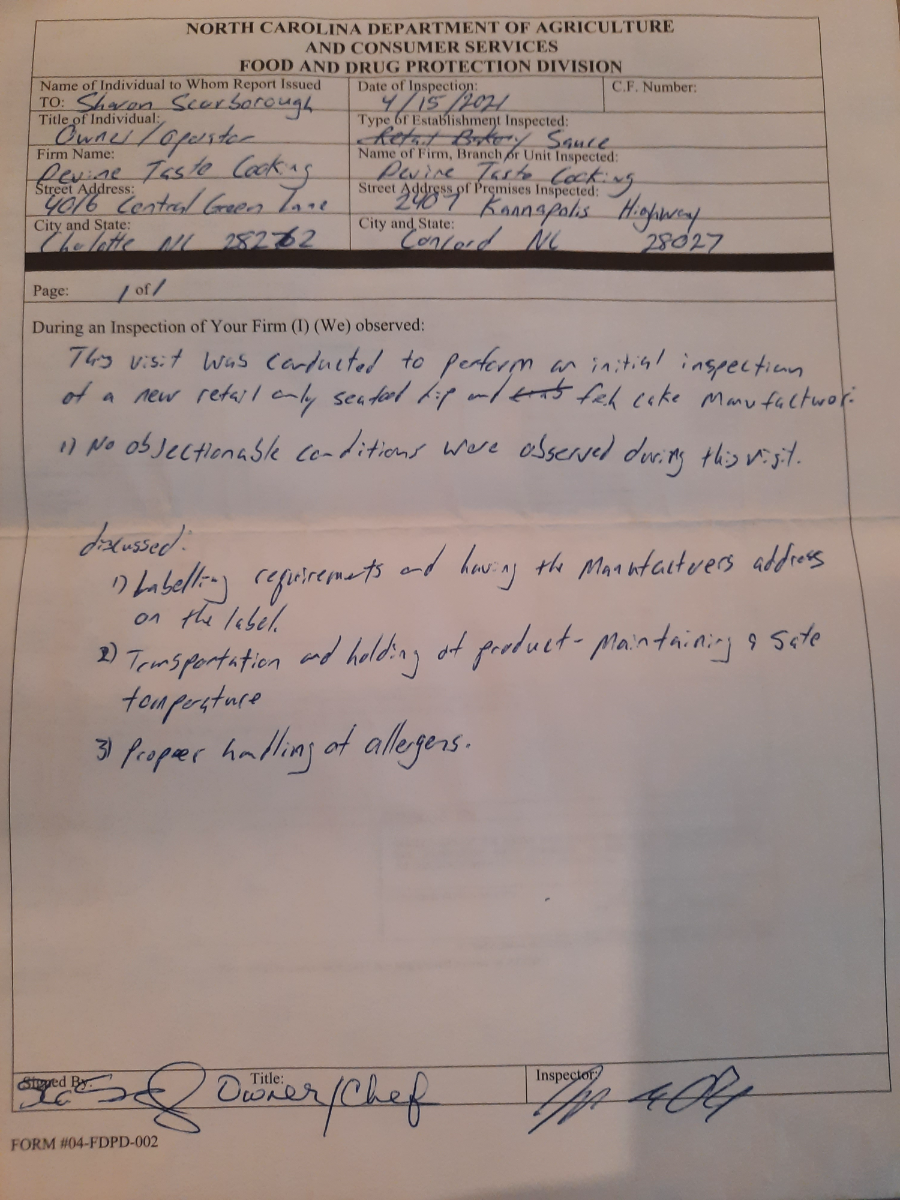 NORTH CAROLINA DEPARTMENT OF AGRICULTURE
AND CONSUMER SERVICES
FOOD AND DRUG PROTECTION DIVISION
Name of Individual to Whom Report Issued
TO: Sharon Scarborough
Date of Inspection:
4/15/2021
C.F. Number:
Title of Individual:
Owner/Operator
Type of Establishment Inspected:
Retail Bakery Sauce
Firm Name:
Devine Taste Cooking
Name of Firm, Branch or Unit Inspected:
Devine Taste Cooking
Street Address:
4016 Central Green Lane
Street Address of Premises Inspected:
2407 Kannapolis Highway
City and State:
Charlotte NC 28262
City and State:
Concord NC 28027
Page: 1 of 1
During an Inspection of Your Firm (I) (We) observed:
This visit was conducted to perform an initial inspection
of a new retail only seafood dip and fish cake Manufacturer.
1) No objectionable conditions were observed during this visit.
discussed:
1) Labelling requirements and having the Manufacturers address
on the label.
2) Transportation and holding of product - Maintaining a safe
temperature
3) Proper handling of allergens.
Signed By:
Title:
Owner/Chef
Inspector:
FORM #04-FDPD-002